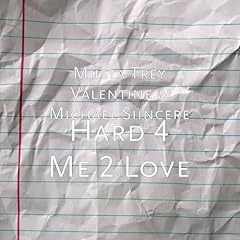 Musex Trey
Valentine &
Michael Siincere
Hard 4
Me 2 Love